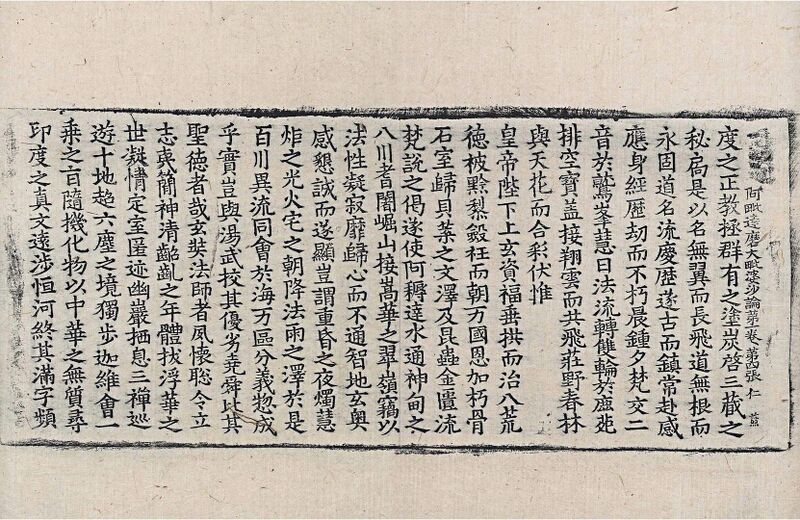 阿毗達磨大毗婆沙論第卷 第四張 仁
度之正教拯群有之塗炭啓三藏之
秘扃是以名無翼而長飛道無根而
永固道名流慶歷遂古而鎮常赴感
應身經歷劫而不朽晨鍾夕梵交二
音於鷲峯慧日法流轉雙輪於鹿菀
排空寶盖接翔雲而共飛莊野春林
與天花而合彩伏惟
皇帝陛下上玄資福垂拱而治八荒
德被黔黎斂衽而朝万國恩加朽骨
石室歸貝葉之文澤及昆蟲金匱流
梵說之偈遂使阿耨達水通神甸之
八川耆闍崛山接嵩華之翠嶺竊以
法性凝寂靡歸心而不通智地玄奧
感懇誠而遂顯豈謂重昏之夜燭慧
炬之光火宅之朝降法雨之澤於是
百川異流同會於海万區分義惣成
乎實豈與湯武挍其優劣堯舜比其
聖德者哉玄奘法師者夙懷聡令立
志夷簡神清齠齔之年體拔浮華之
世凝情定室匿迹幽巖栖息三禪巡
遊十地超六塵之境獨步迦維會一
乘之旨隨機化物以中華之無質尋
印度之真文遠涉恒河終其滿字頻